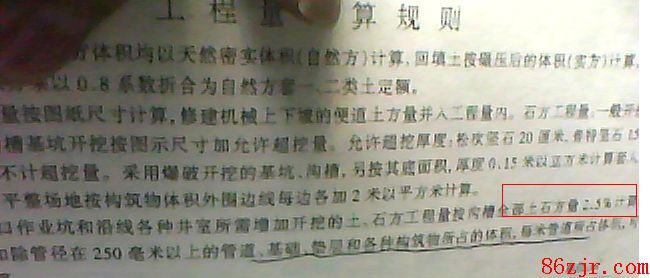 工程量 算规则
方体积均以天然密实体积(自然方)计算,回填土按碾压后的体积(实方)计算,
以0.8系数折合为自然方套一、二类土定额。
量按图纸尺寸计算,修建机械上下坡的便道土方量并入工程量内。石方工程量,一般开挖
槽基坑开挖按图示尺寸加允许超挖量。允许超挖厚度:松次坚石20厘米,普特坚石15
不计超挖量。采用爆破开挖的基坑、沟槽,另按其底面积,厚度0.15米以立方米计算
平整场地按构筑物体积外围边线每边各加2米以平方米计算。
口作业坑和沿线各种井室所需增加开挖的土、石方工程量按沟槽全部土石方量2.5%计算
扣除管径在250毫米以上的管道、基础、垫层和各种构筑物所占的体积,每米管道所占体积,
86zjr.com